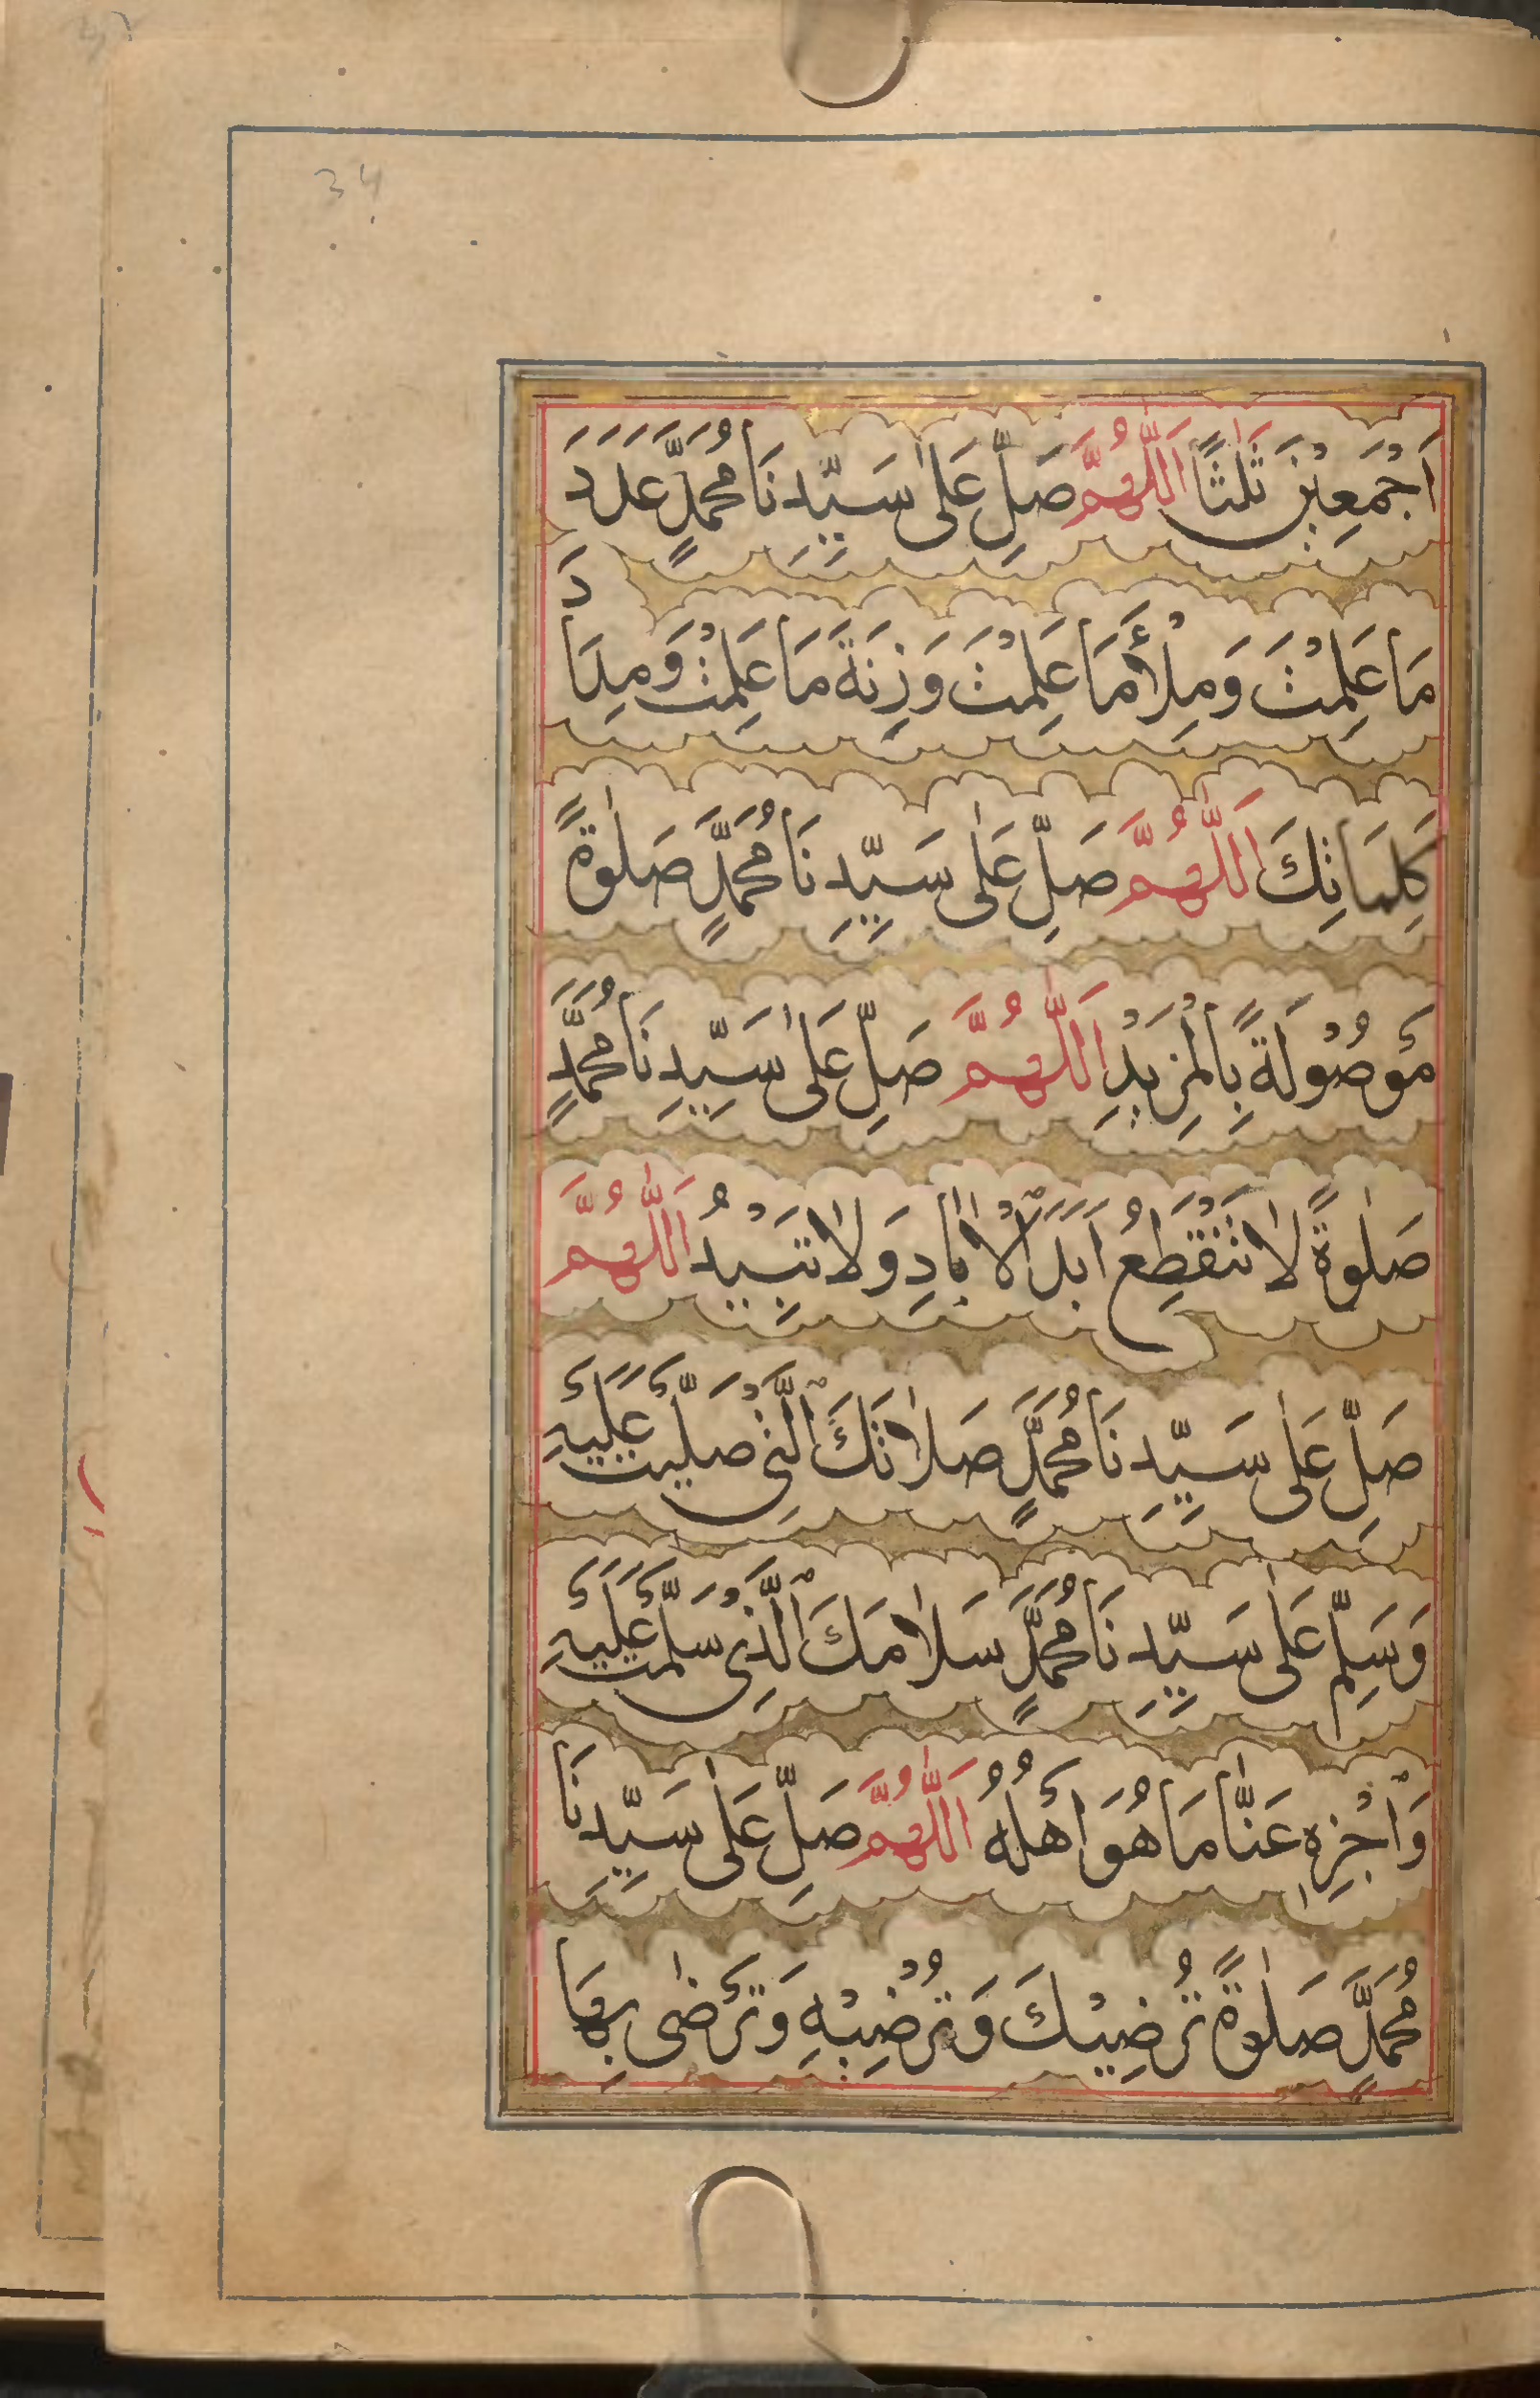 34
اَجْمَعِيْنَ ثَلٰثًا اَللّٰهُمَّ صَلِّ عَلٰى سَيِّدِنَا مُحَمَّدٍ عَدَدَ
مَا عَلِمْتَ وَمِلْأَ مَا عَلِمْتَ وَزِنَةَ مَا عَلِمْتَ وَمِدَادَ
كَلِمَاتِكَ اَللّٰهُمَّ صَلِّ عَلٰى سَيِّدِنَا مُحَمَّدٍ صَلٰوةً
مَوْصُوْلَةً بِالْمَزِيْدِ اَللّٰهُمَّ صَلِّ عَلٰى سَيِّدِنَا مُحَمَّدٍ
صَلٰوةً لَا تَنْقَطِعُ اَبَدَ الْاٰبَادِ وَلَا تَبِيْدُ اَللّٰهُمَّ
صَلِّ عَلٰى سَيِّدِنَا مُحَمَّدٍ صَلَاتَكَ الَّتِىْ صَلَّيْتَ عَلَيْهِ
وَسَلِّمْ عَلٰى سَيِّدِنَا مُحَمَّدٍ سَلَامَكَ الَّذِىْ سَلَّمْتَ عَلَيْهِ
وَاجْزِهِ عَنَّا مَا هُوَ اَهْلُهُ اَللّٰهُمَّ صَلِّ عَلٰى سَيِّدِنَا
مُحَمَّدٍ صَلٰوةً تُرْضِيْكَ وَتُرْضِيْهِ وَتَرْضٰى بِهَا